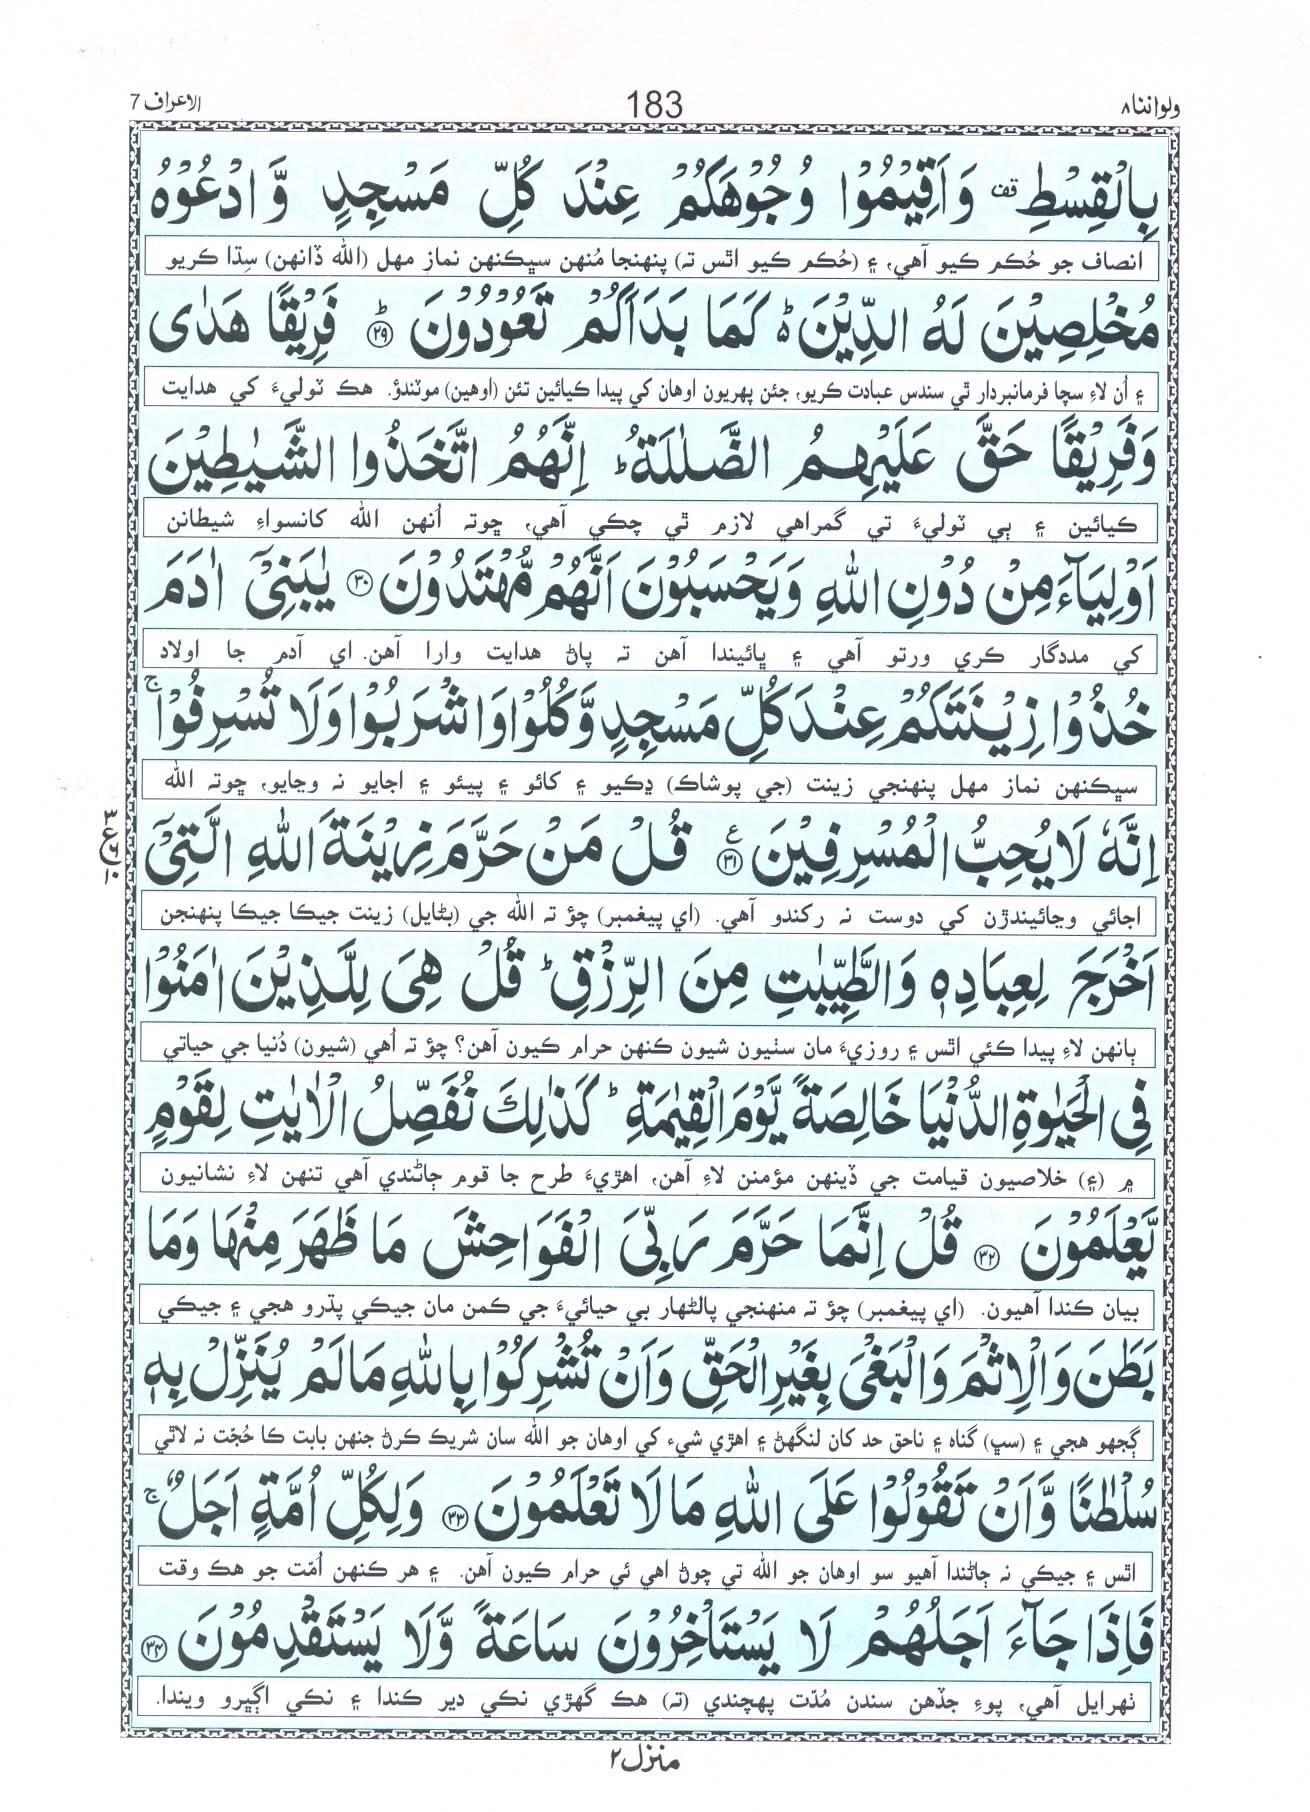 ولواننا ٨
183
الاعراف 7
بِالْقِسْطِ قف وَاَقِيْمُوْا وُجُوْهَكُمْ عِنْدَ كُلِّ مَسْجِدٍ وَّادْعُوْهُ
انصاف جو حُڪم ڪيو آهي، ۽ (حُڪم ڪيو اٿس ته) پنهنجا مُنهن سڀڪنهن نمازِ مهل (الله ڏانهن) سِڌا ڪريو
مُخْلِصِيْنَ لَهُ الدِّيْنَ ؕ كَمَا بَدَاَكُمْ تَعُوْدُوْنَ ؕ ۲۹ فَرِيْقًا هَدٰى
۽ اُن لاءِ سچا فرمانبردار ٿي سندس عبادت ڪريو، جئن پهريون اوهان کي پيدا ڪيائين تئن (اوهين) موٽندؤ. هڪ ٽوليءَ کي هدايت
وَفَرِيْقًا حَقَّ عَلَيْهِمُ الضَّلٰلَةُ ؕ اِنَّهُمُ اتَّخَذُوا الشَّيٰطِيْنَ
ڪيائين ۽ ٻي ٽوليءَ تي گمراهي لازم ٿي چڪي آهي، ڇوته اُنهن الله کانسواءِ شيطانن
اَوْلِيَآءَ مِنْ دُوْنِ اللهِ وَيَحْسَبُوْنَ اَنَّهُمْ مُّهْتَدُوْنَ ۳۰ يٰبَنِيْٓ اٰدَمَ
کي مددگار ڪري ورتو آهي ۽ ڀائيندا آهن ته پاڻ هدايت وارا آهن. اي آدم جا اولاد
خُذُوْا زِيْنَتَكُمْ عِنْدَ كُلِّ مَسْجِدٍ وَّكُلُوْا وَاشْرَبُوْا وَلَا تُسْرِفُوْا ۚ
سڀڪنهن نماز مهل پنهنجي زينت (جي پوشاڪ) ڍڪيو ۽ کائو ۽ پيئو ۽ اجايو نه وڃايو، ڇوته الله
اِنَّهٗ لَا يُحِبُّ الْمُسْرِفِيْنَ ۳۱ ع قُلْ مَنْ حَرَّمَ زِيْنَةَ اللهِ الَّتِيْٓ
اجائي وڃائيندڙن کي دوست نه رکندو آهي. (اي پيغمبر) چؤ ته الله جي (بڻايل) زينت جيڪا جيڪا پنهنجن
اَخْرَجَ لِعِبَادِهٖ وَالطَّيِّبٰتِ مِنَ الرِّزْقِ ؕ قُلْ هِىَ لِلَّذِيْنَ اٰمَنُوْا
ٻانهن لاءِ پيدا ڪئي اٿس ۽ روزيءَ مان سٺيون شيون ڪنهن حرام ڪيون آهن؟ چؤ ته اُهي (شيون) دُنيا جي حياتي
فِي الْحَيٰوةِ الدُّنْيَا خَالِصَةً يَّوْمَ الْقِيٰمَةِ ؕ كَذٰلِكَ نُفَصِّلُ الْاٰيٰتِ لِقَوْمٍ
۾ (۽) خلاصيون قيامت جي ڏينهن مؤمنن لاءِ آهن، اهڙيءَ طرح جا قوم ڄاڻندي آهي تنهن لاءِ نشانيون
يَّعْلَمُوْنَ ۳۲ قُلْ اِنَّمَا حَرَّمَ رَبِّيَ الْفَوَاحِشَ مَا ظَهَرَ مِنْهَا وَمَا
بيان ڪندا آهيون. (اي پيغمبر) چؤ ته منهنجي پالڻهار بي حيائيءَ جي ڪمن مان جيڪي پڌرو هجي ۽ جيڪي
بَطَنَ وَالْاِثْمَ وَالْبَغْيَ بِغَيْرِ الْحَقِّ وَاَنْ تُشْرِكُوْا بِاللهِ مَا لَمْ يُنَزِّلْ بِهٖ
ڳجهو هجي ۽ (سڀ) گناه ۽ ناحق حد کان لنگهڻ ۽ اهڙي شيء کي اوهان جو الله سان شريڪ ڪرڻ جنهن بابت ڪا حُجّت نه لاٿي
سُلْطٰنًا وَّاَنْ تَقُوْلُوْا عَلَى اللهِ مَا لَا تَعْلَمُوْنَ ۳۳ وَلِكُلِّ اُمَّةٍ اَجَلٌ ۚ
اٿس ۽ جيڪي نه ڄاڻندا آهيو سو اوهان جو الله تي چوڻ اهي ئي حرام ڪيون آهن. ۽ هر ڪنهن اُمّت جو هڪ وقت
فَاِذَا جَآءَ اَجَلُهُمْ لَا يَسْتَاْخِرُوْنَ سَاعَةً وَّلَا يَسْتَقْدِمُوْنَ ۳۴
ٺهرايل آهي، پوءِ جڏهن سندن مُدّت پهچندي (ته) هڪ گهڙي نڪي دير ڪندا ۽ نڪي اڳڀرو ويندا.
منزل ۲